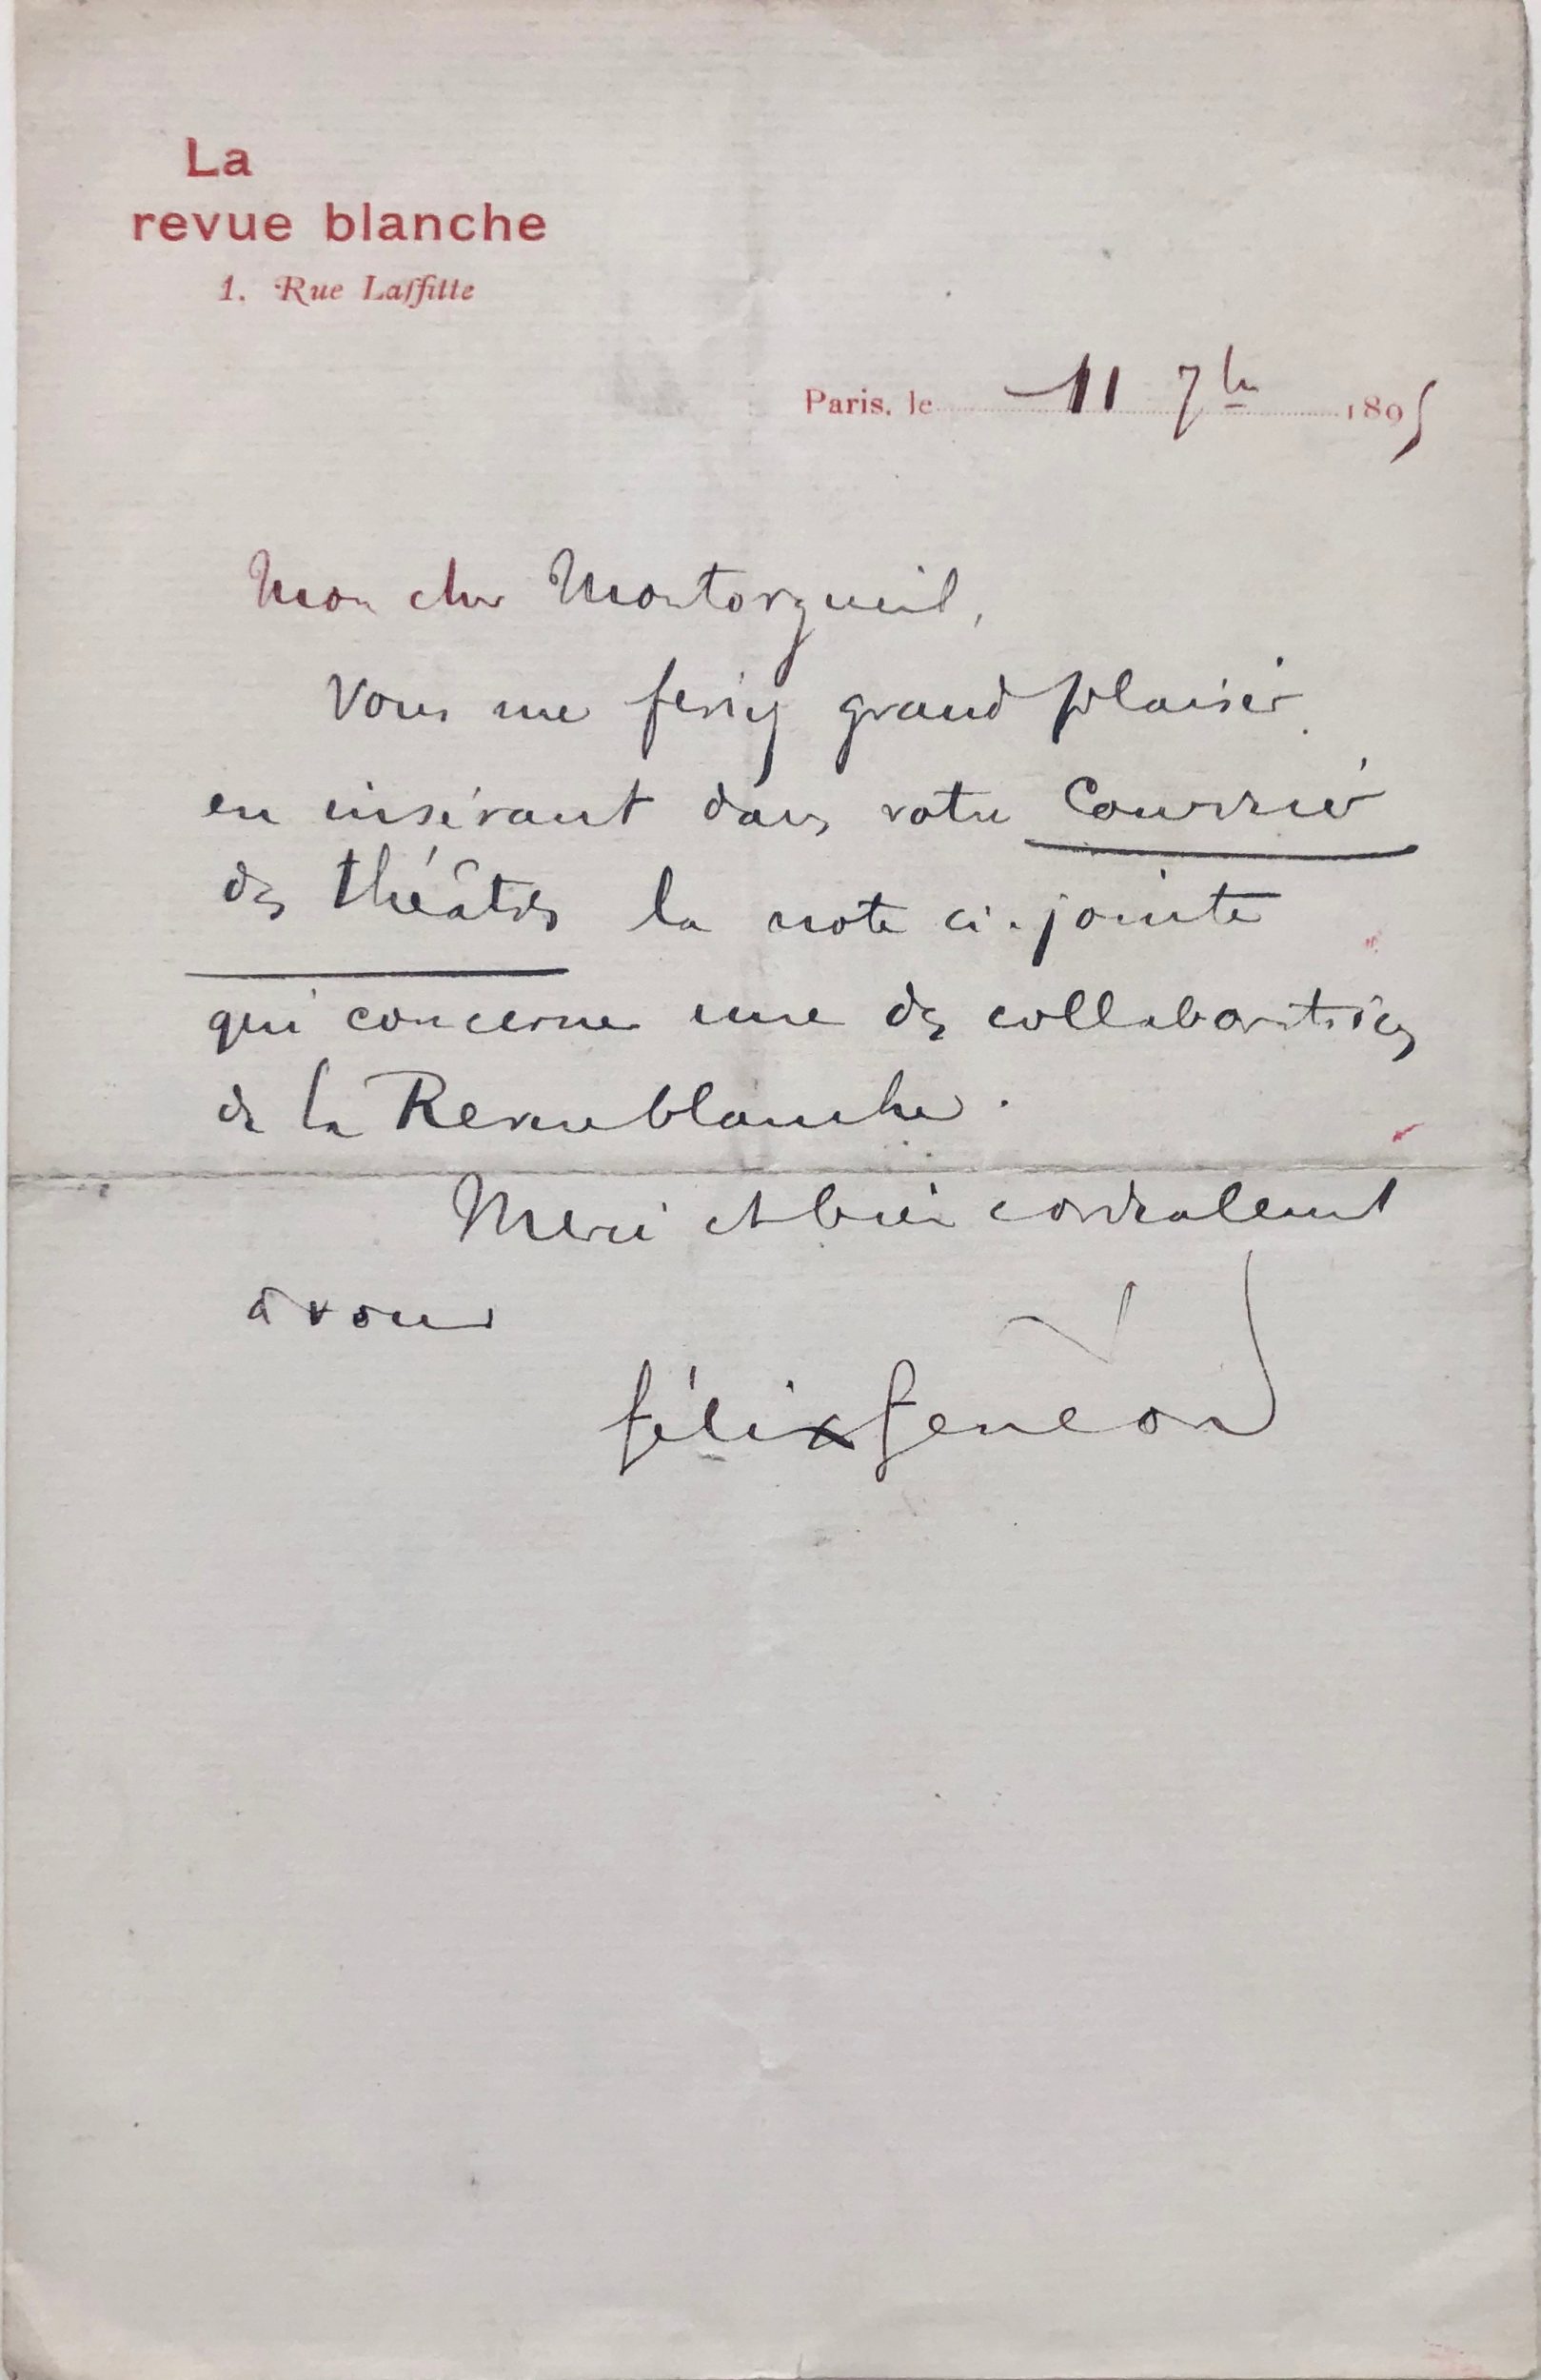 La
revue blanche
1. Rue Laffitte
Paris, le 11 7bre 1895
Mon cher Montorgueil,
Vous me feriez grand plaisir
en insérant dans votre Courrier
des théâtres la note ci-jointe
qui concerne une des collaboratrices
de la Revue blanche.
Merci et bien cordialement
à vous
félix fénéon